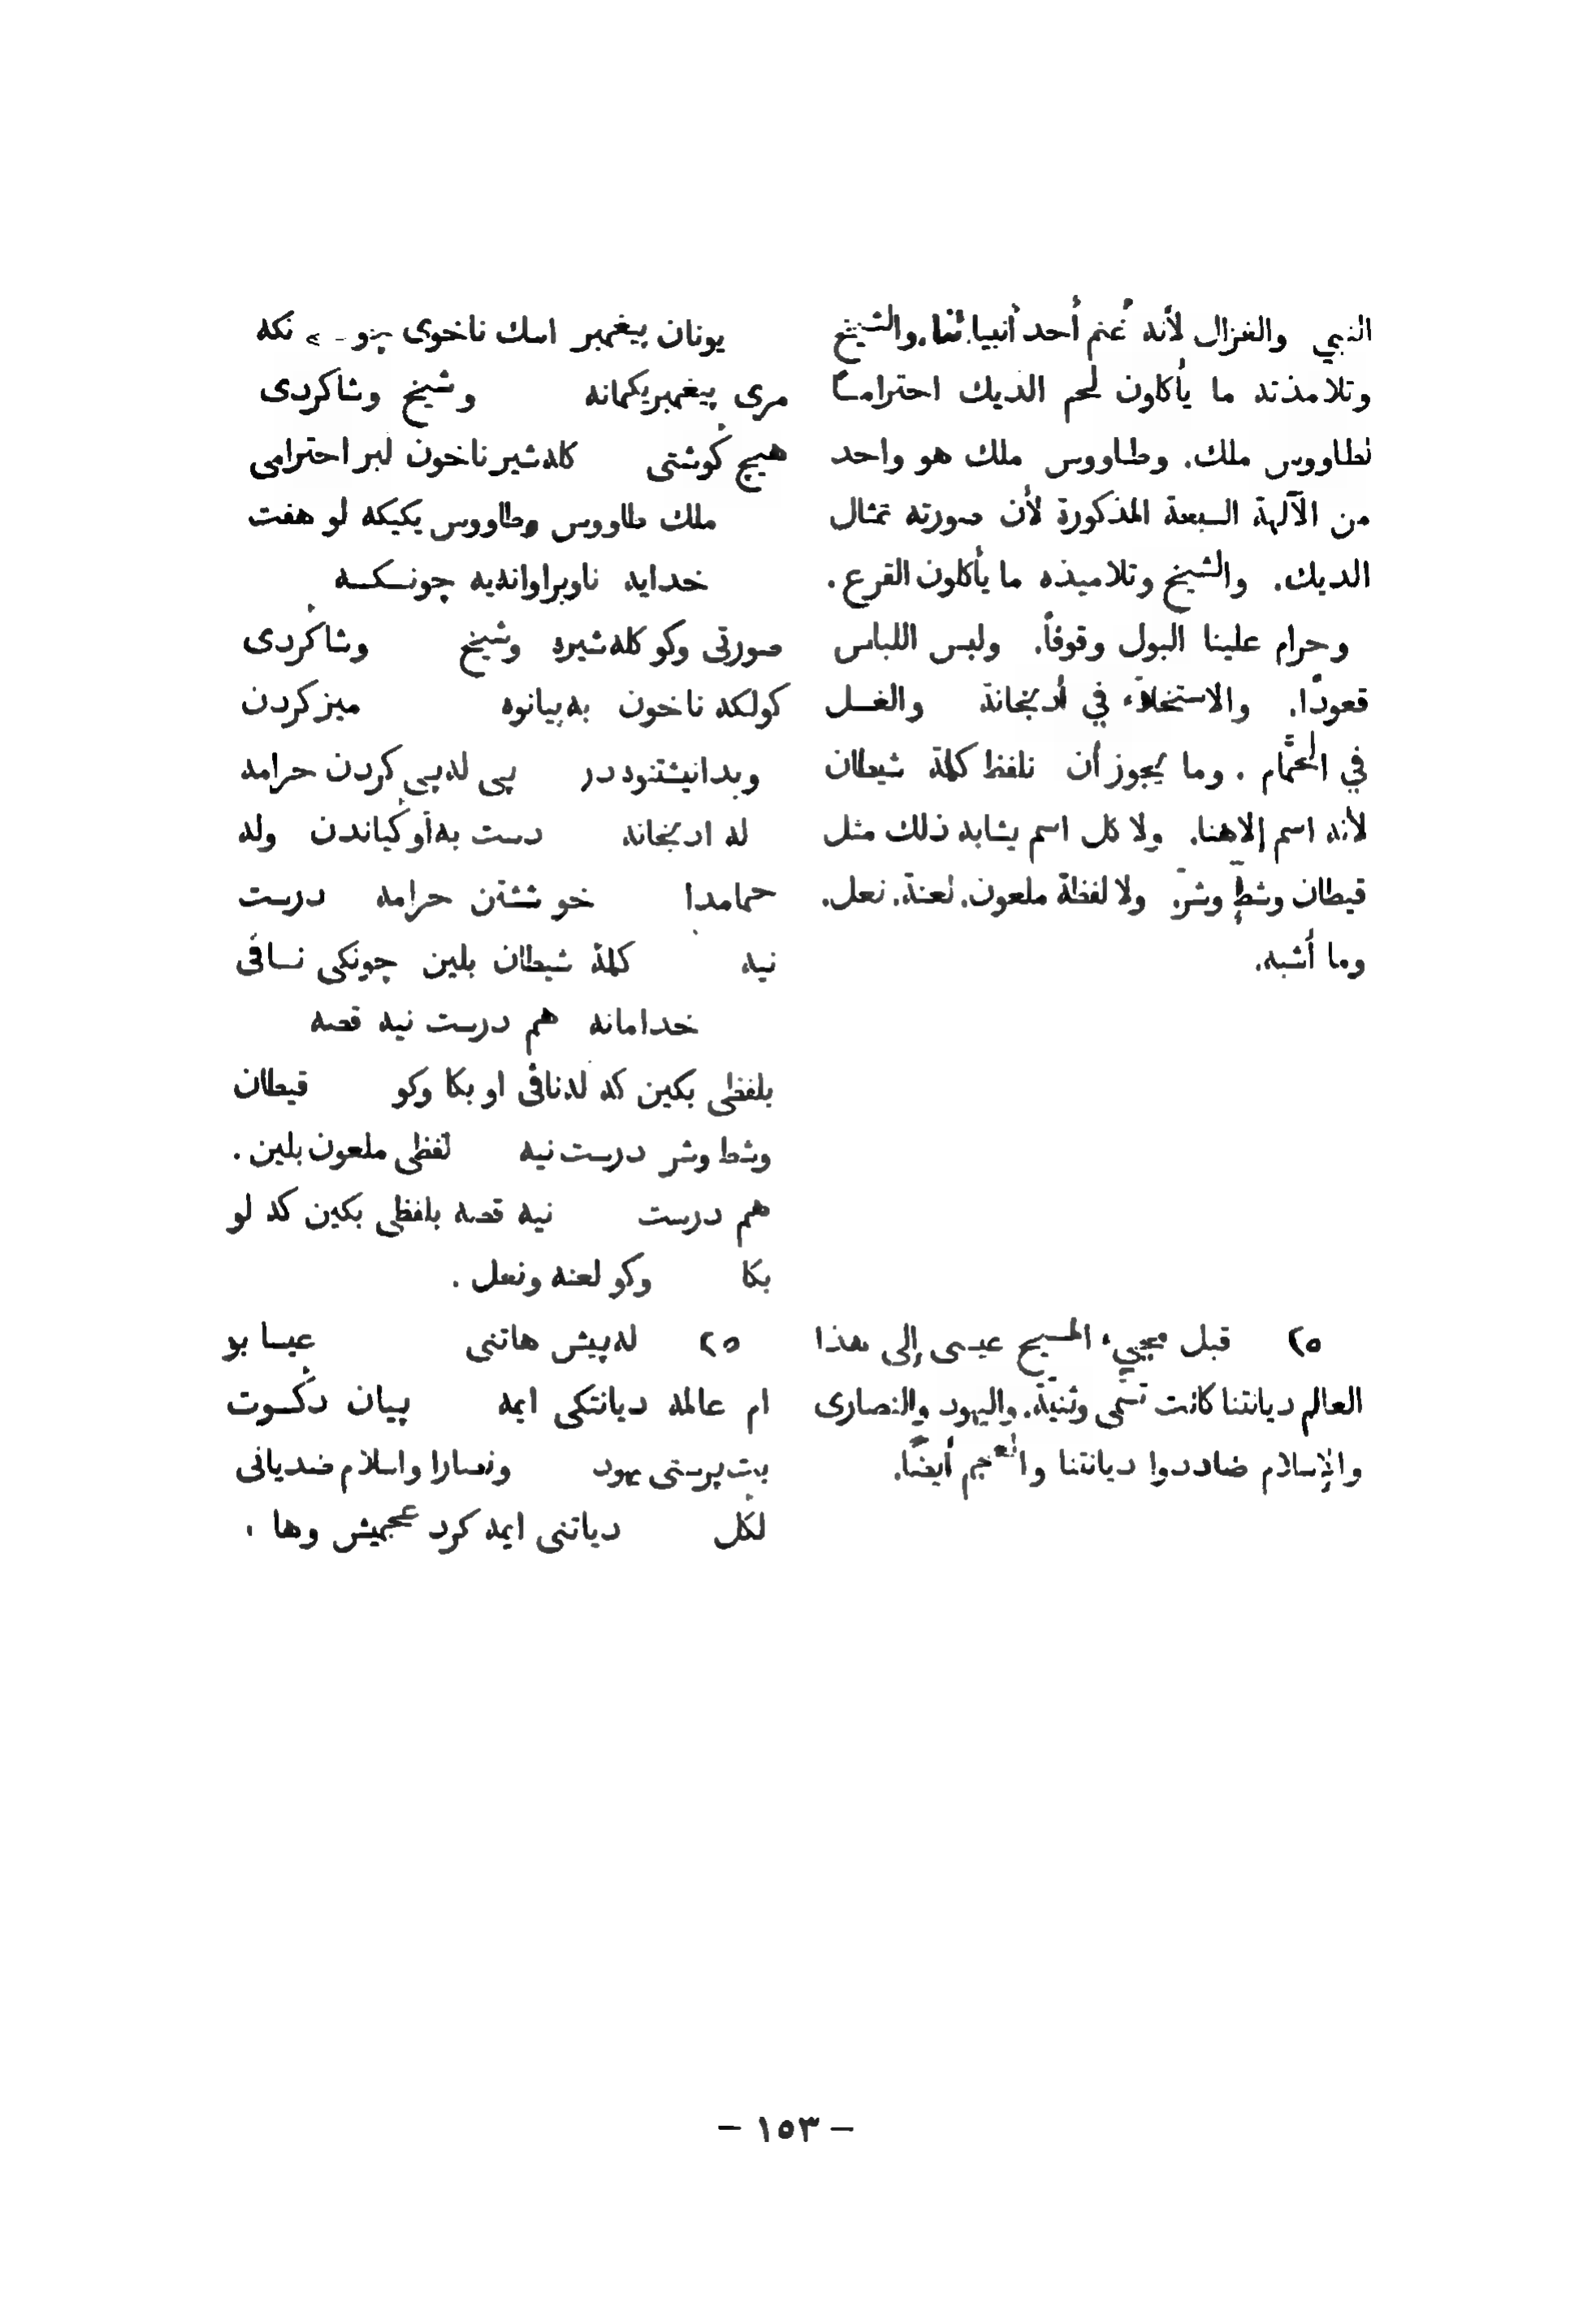 النبي والغزال لأنه غنم أحد أنبيائنا. والشيخ
وتلامذته ما يأكلون لحم الديك احتراماً
لطاووس ملك. وطاووس ملك هو واحد
من الآلهة السبعة المذكورة لأن صورته تمثال
الديك. والشيخ وتلاميذه ما يأكلون القرع.
وحرام علينا البول وقوفاً. ولبس اللباس
قعودًا. والاستخلاء في أدبخانة والغسل
في الحمّام. وما يجوز أن نلفظ كلمة شيطان
لأنه اسم إلاهنا. ولا كل اسم يشابه ذلك مثل
قيطان وشطّ وشرّ. ولا لفظة ملعون. لعنة. نعل.
وما أشبه.
٢٥ قبل مجيء المسيح عيسى إلى هذا
العالم ديانتنا كانت تسمّى وثنيّة. واليهود والنصارى
والإسلام ضاددوا ديانتنا والعجم أيضًا.
يونان پيغمبر اسك ناخوى چونكه
مرى پيغمبريكمانه وشيخ وشاگردى
هيچ گوشتى كله شير ناخون لبر احترامى
ملك طاووس وطاووس يكيكه لو هفت
خدايه ناوبراوانديه چونكه
صورتى وكو كله شيره وشيخ وشاگردى
كولكه ناخون به پيانوه ميز كردن
وبدانيشتنوه در پى له پى كردن حرامه
له ادبخانه دست به آو گياندن وله
حمامدا خو ششتن حرامه درست
نيه كلمة شيطان بلين چونكى ناڤى
خدامانه هم درست نيه قصه
بلفظى بكين كه له ناڤى او بكا وكو قيطان
وشط وشر درست نيه لفظى ملعون بلين.
هم درست نيه قصه بلفظى بكين كه لو
بكا وكو لعنه ونعل.
٢٥ له پيش هاتنى عيسا بو
ام عالمه ديانتكى ايمه پيان دگوت
بت پرستى يهود ونصارا واسلام ضديانى
لگل دياتنى ايمه كرد عجميش وها.
– ١٥٣ –